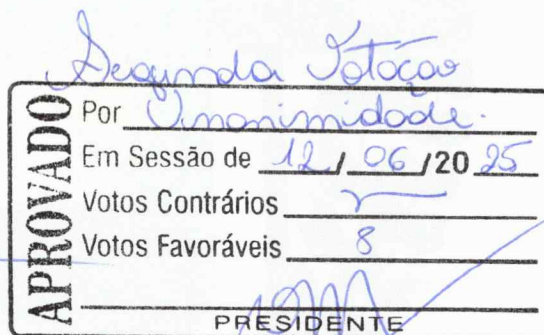 Segunda Votação
APROVADO
Por Unanimidade.
Em Sessão de 12 / 06 /20 25
Votos Contrários
Votos Favoráveis 8
PRESIDENTE